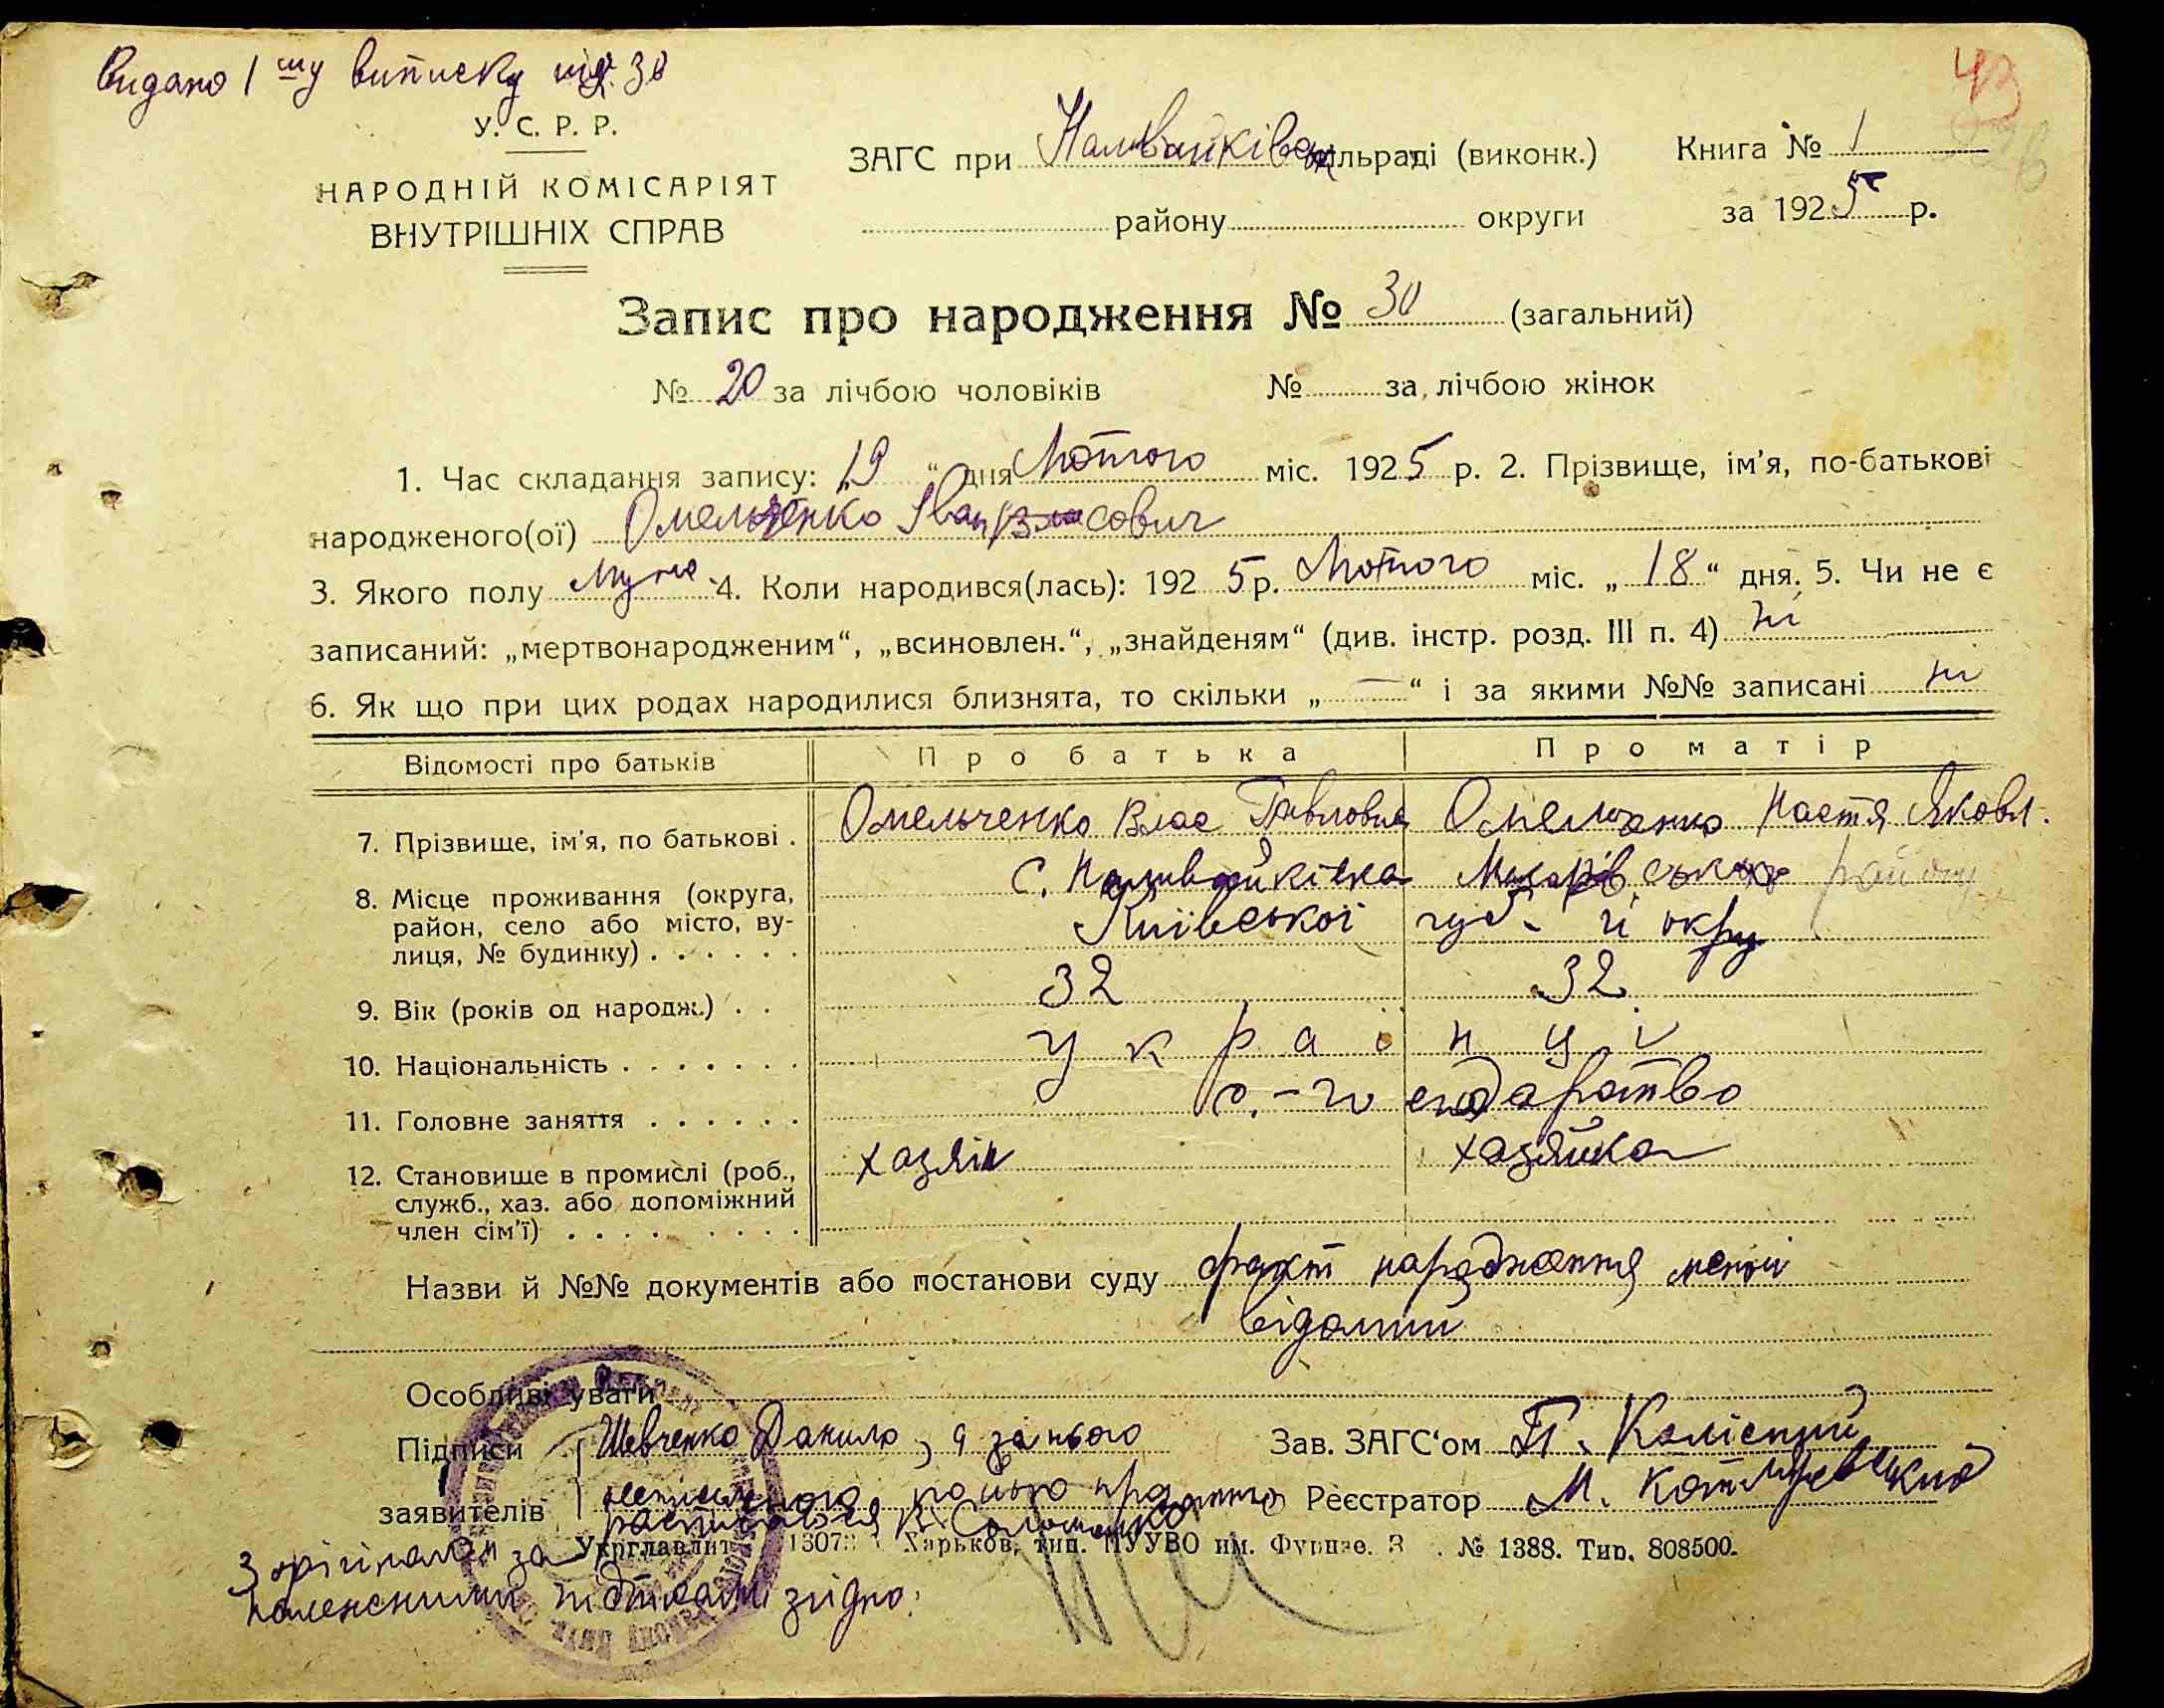 Видано 1 шу виписку під. 30
43
У. С. Р. Р.
НАРОДНІЙ КОМІСАРІЯТ
ВНУТРІШНІХ СПРАВ
ЗАГС при Наливайківськ сільраді (виконк.) Книга № 1
району округи за 1925 р.
Запис про народження № 30 (загальний)
№ 20 за лічбою чоловіків № за лічбою жінок
1. Час складання запису: 19 " дня Лютого міс. 1925 р. 2. Прізвище, ім'я, по-батькові
народженого(ої) Омельченко Іван Власович
3. Якого полу Муж. 4. Коли народився(лась): 1925 р. Лютого міс. „18" дня. 5. Чи не є
записаний: „мертвонародженим", „всиновлен.", „знайденям" (див. інстр. розд. III п. 4) ні
6. Як що при цих родах народилися близнята, то скільки „—" і за якими №№ записані ні
Відомості про батьків Про батька Про матір
7. Прізвище, ім'я, по батькові . Омельченко Влас Павлович Омельченко Настя Яковл.
8. Місце проживання (округа, с. Наливайківка Макарівського району
район, село або місто, ву- Київської губ. й окру
лиця, № будинку) . . . . . .
9. Вік (років од народж.) . . 32 32
10. Національність . . . . . . . українці
11. Головне заняття . . . . . . с.-госодарство
12. Становище в промислі (роб., хазяїн хазяйка
служб., хаз. або допоміжний
член сім'ї) . . . . . . . . .
Назви й №№ документів або постанови суду факт народження мені
відомий
Особливі уваги
Підписи Шевченко Данило, а за нього Зав. ЗАГС'ом П. Колісник
заявителів неписьменого на його прохання Реєстратор М. Котляревський
расписався К. Соломенко
Укрглавліт 1307 Харьков, тип. ПУУВО им. Фрунзе. З . № 1388. Тир. 808500.
З орігіналом за
належними підписами згідно: